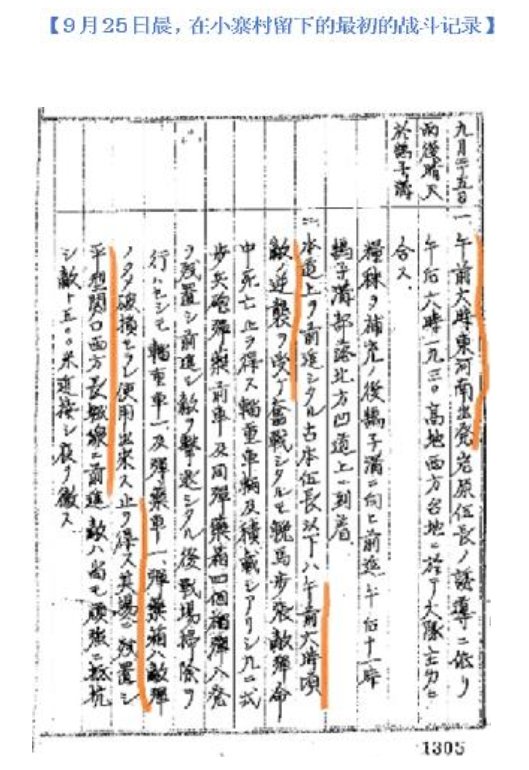 【9月25日晨，在小寨村留下的最初的战斗记录】
九月二十五日
雨後晴天
於鷂子澗
一 午前六時東河南出発岩原伍長ノ誘導ニ依リ
午后六時一九三〇高地西方台地ニ於テ大隊主力ニ
合ス
糧秣ヲ補充ノ後鷂子澗ニ向ヒ前進午后十一時
鷂子澗部落北方凹道上ニ到着
二 本道上ヲ前進シタル古本伍長以下ハ午前六時頃
敵ノ逆襲ヲ受ケ奮戦シタルモ輓馬歩張敵弾命
中死亡止ヲ得ス輜重車輌及積載シアリシ九二式
歩兵砲弾薬前車及同弾薬箱四個榴弾八発
ヲ残置シ前進シ敵ヲ撃退シタル後戦場掃除ヲ
行ハセシモ輜重車一及弾薬車一弾薬箱ハ敵弾
ノタメ破損セラレ使用出来ス止ヲ得ス其場ニ放置シ
平型関口西方長城線ニ前進敵ハ尚モ頑強ニ抵抗
シ敵ト五〇〇米近接シ夜ヲ徹ス
1305